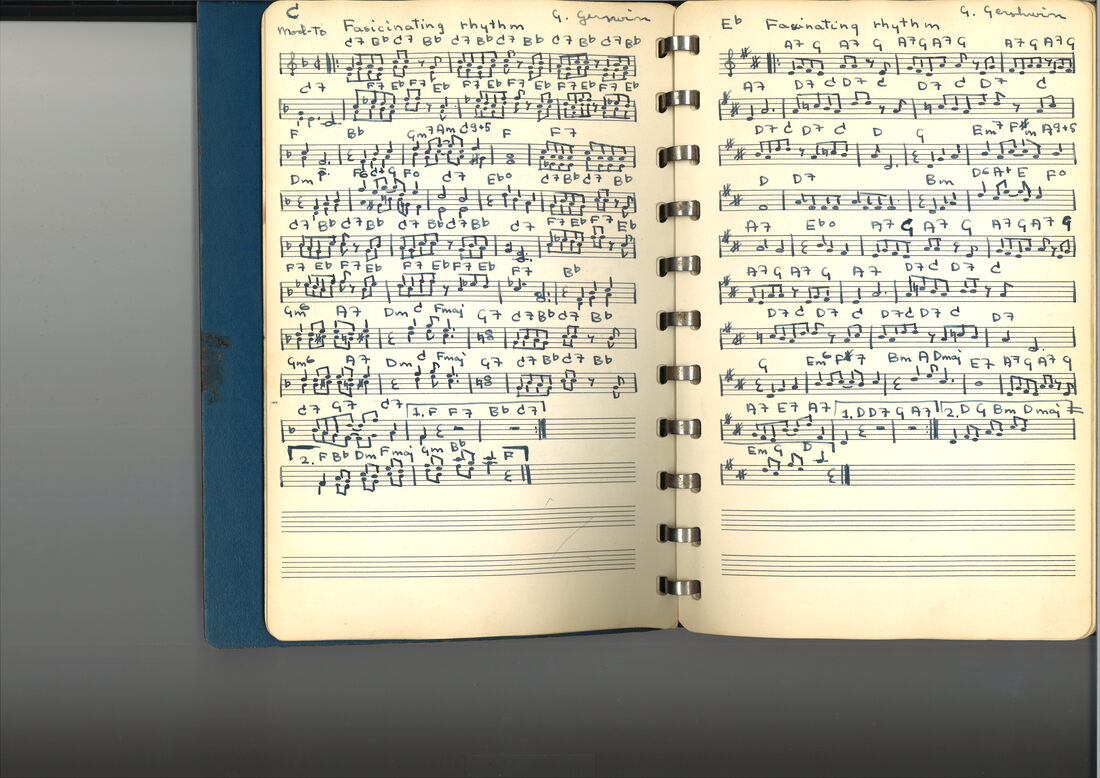 C
Fasicinating rhythm G. Gerswin
Mod-To
C7 Bb C7 Bb C7 Bb C7 Bb C7 Bb C7 Bb
C7 F7 Eb F7 Eb F7 Eb F7 Eb F7 Eb F7 Eb
F Bb Gm7 Am C9+5 F F7
Dm Fo C7 Ebo C7 Bb C7 Bb
C7 Bb C7 Bb C7 Bb C7 Bb C7 F7 Eb F7 Eb
F7 Eb F7 Eb F7 Eb F7 Eb F7 Bb
Gm6 A7 Dm C Fmaj G7 C7 Bb C7 Bb
Gm6 A7 Dm C Fmaj G7 C7 Bb C7 Bb
C7 G7 C7 1. F F7 Bb C7
2. F Bb Dm F maj Gm Bb F
Eb Fascinating rhythm G. Gershwin
A7 G A7 G A7 G A7 G A7 G A7 G
A7 D7 C D7 C D7 C D7 C
D7 C D7 C D G Em7 F#m A9+5
D D7 Bm D6 A+ E Fo
A7 Ebo A7 G A7 G A7 G A7 G
A7 G A7 G A7 D7 C D7 C
D7 C D7 C D7 C D7 C D7
G Em6 F#7 Bm A Dmaj E7 A7 G A7 G
A7 E7 A7 1. D D7 G A7 2. D G Bm D maj
Em G D